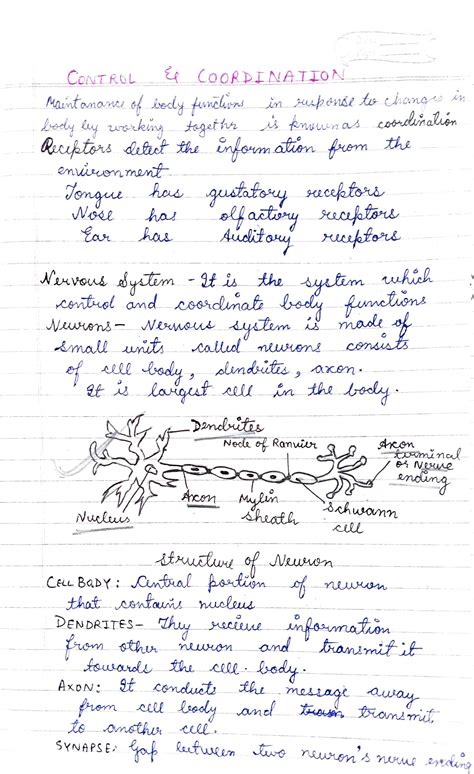 CONTROL & COORDINATION
Maintanance of body functions in response to changes in
body by working together is known as coordination
Receptors detect the information from the
environment
Tongue has gustatory receptors
Nose has olfactory receptors
Ear has Auditory receptors
Nervous System - It is the system which
control and coordinate body functions
Neurons - Nervous system is made of
small units called neurons consists
of cell body, dendrites, axon.
It is largest cell in the body.
Dendrites
Node of Ranvier
Axon
terminal
or Nerve
ending
Axon
Mylin
Sheath
Schwann
cell
Nucleus
Structure of Neuron
CELL BODY: Central portion of neuron
that contains nucleus
DENDRITES- They recieve information
from other neuron and transmit it
towards the cell body.
AXON: It conducts the message away
from cell body and transmit
to another cell.
SYNAPSE: Gap between two neuron's nerve ending